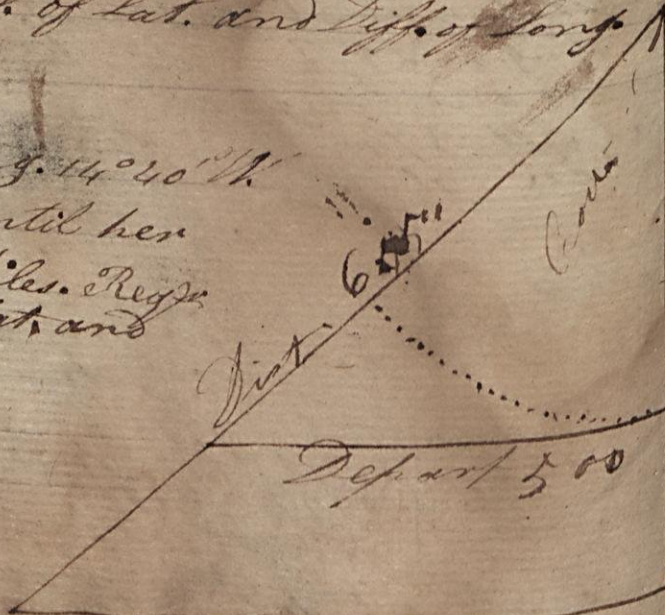 . of Lat. and Diff. of Long.
g. 14° 40' W.
ntil her
les. Req
at. and
Dist
Depart 500